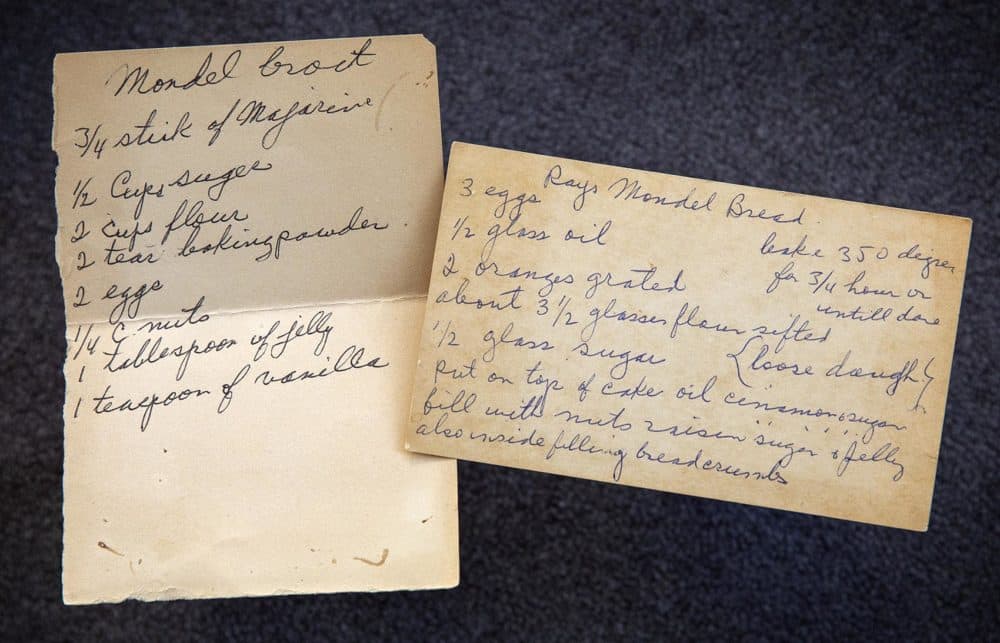 Mondel broit
3/4 stick of Majarine
1/2 Cups suger
2 cups flour
2 teas bakingpowder.
2 eggs
1/4 c nuts
1 tablespoon of jelly
1 teaspoon of vanilla
Rays Mondel Bread.
3 eggs
1/2 glass oil
2 oranges grated
about 3 1/2 glasses flour sifted
1/2 glass sugar
(loose daugh)
bake 350 degree
for 3/4 hour or
untill done
put on top of cake oil cinamon, sugar
fill with nuts raisin "sugar" & jelly
also inside filling breadcrumbs